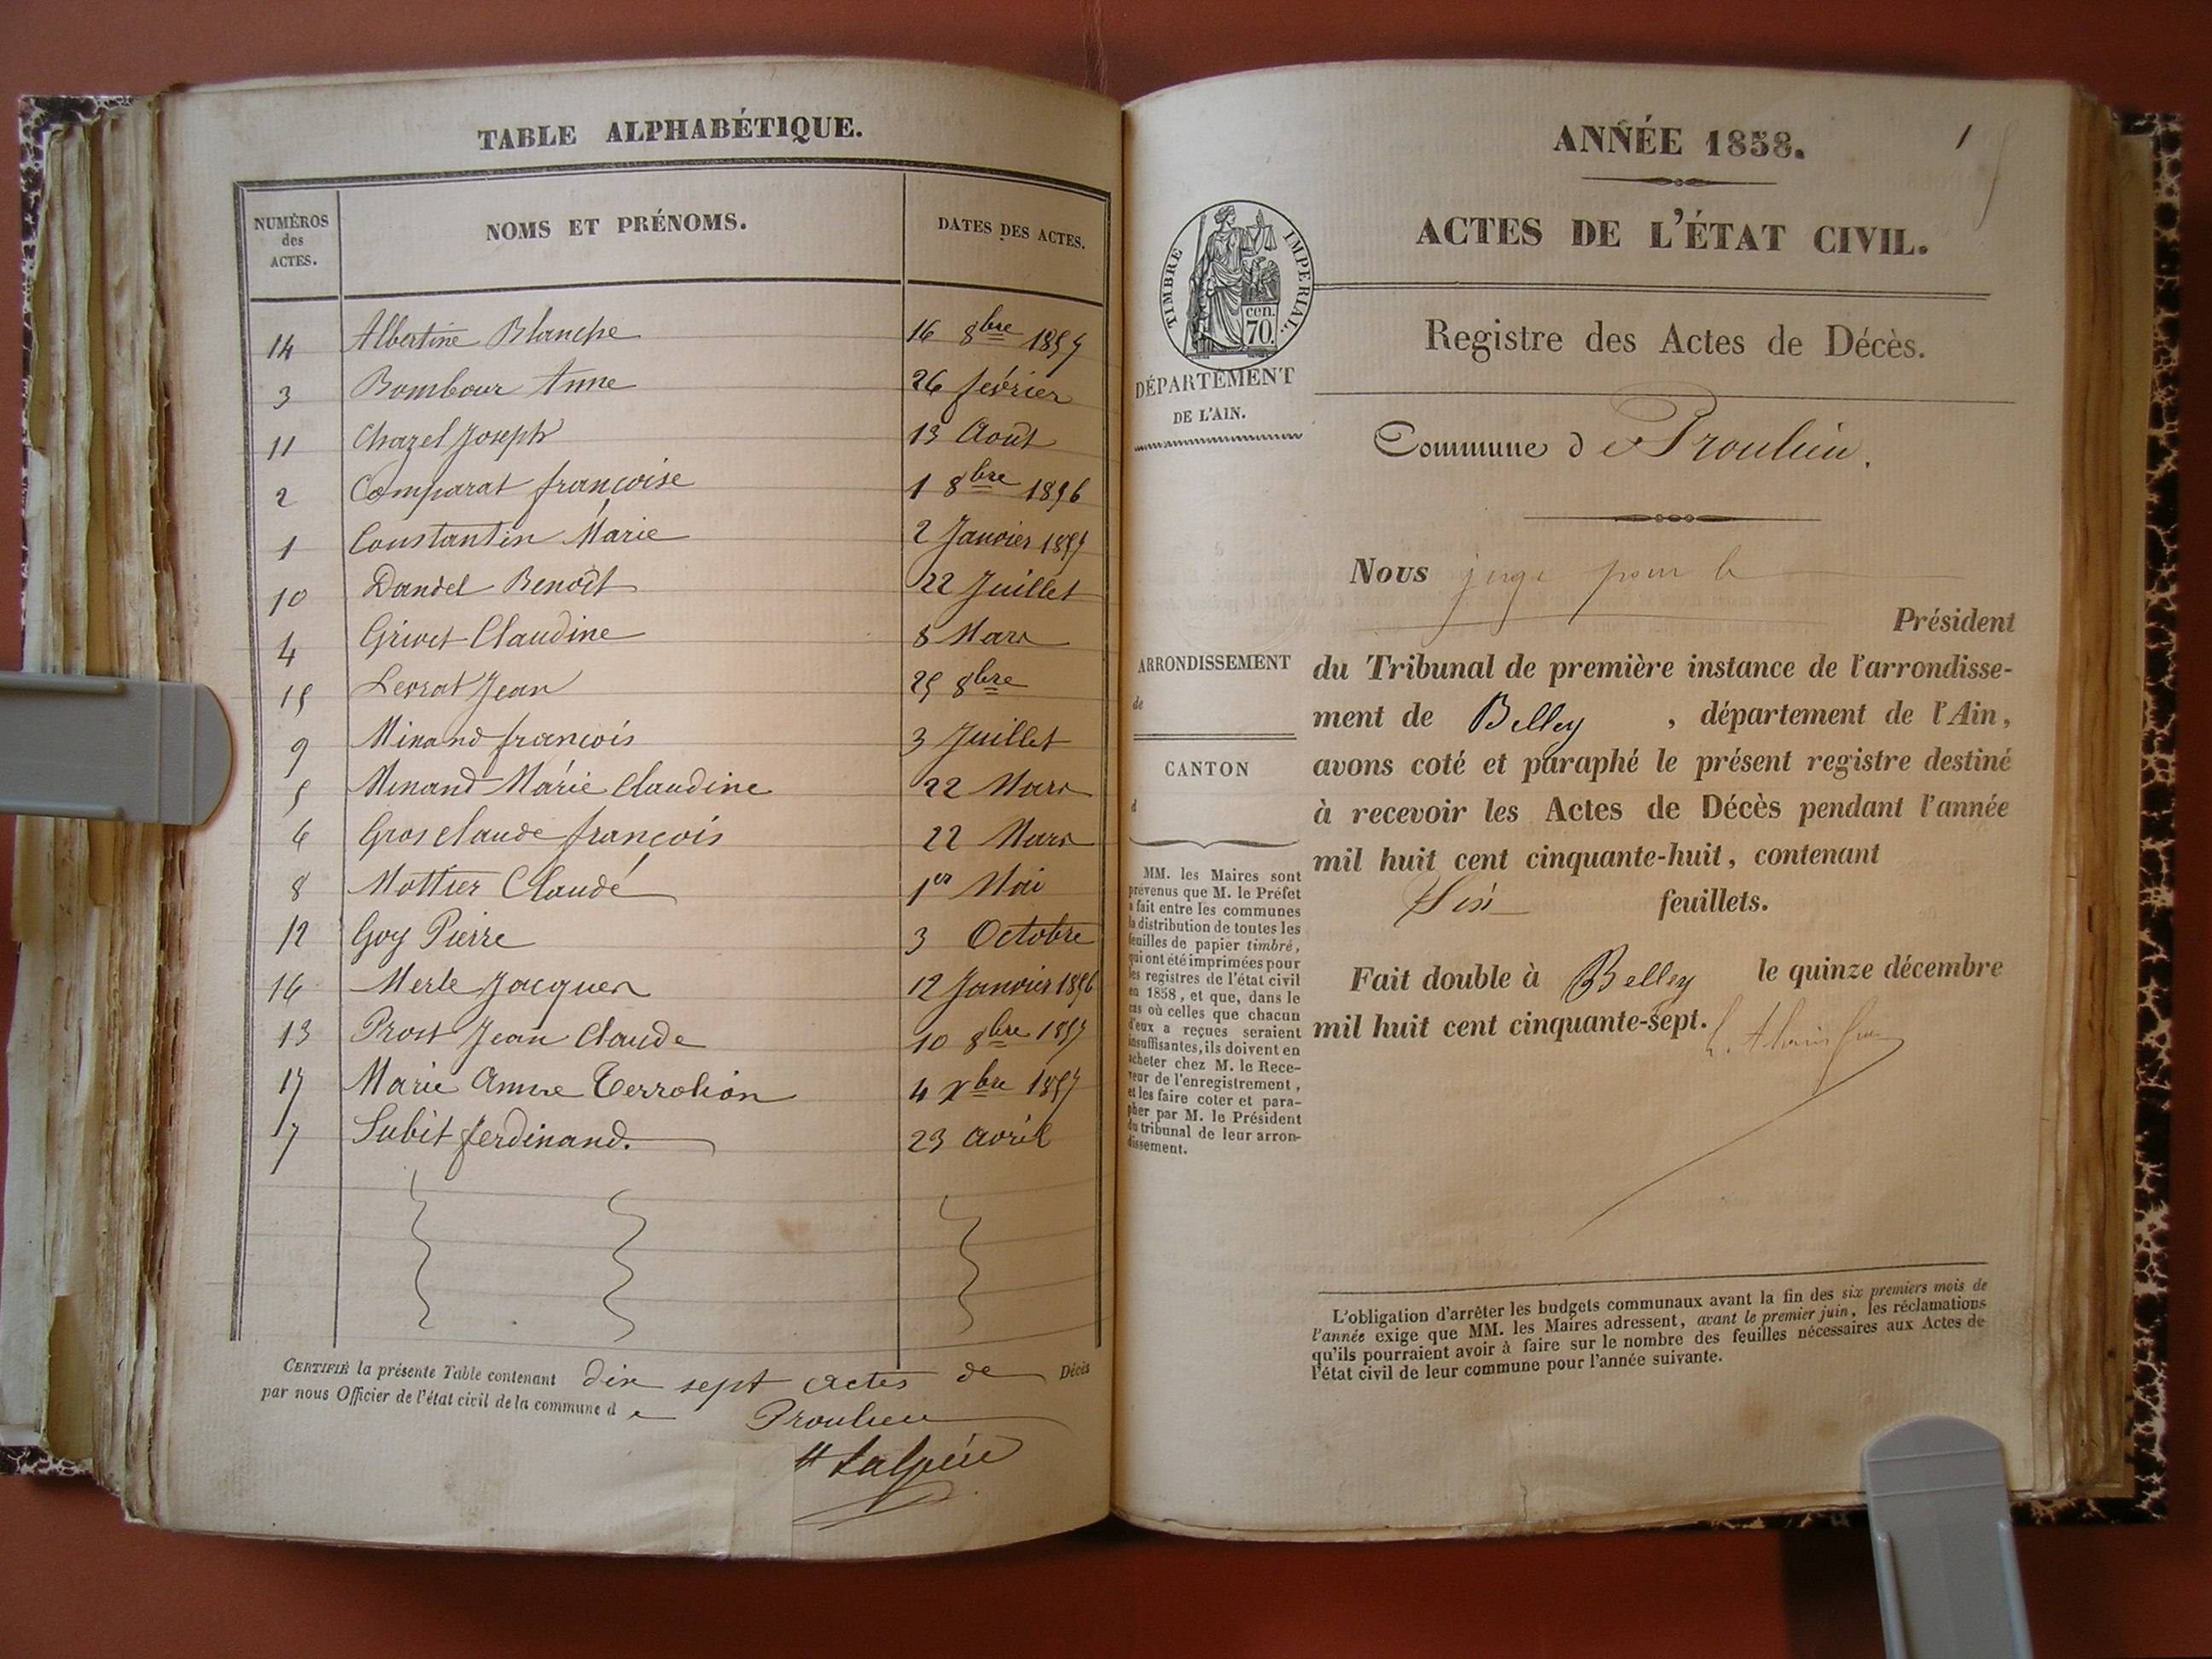 TABLE ALPHABÉTIQUE.
NUMÉROS des ACTES. NOMS ET PRÉNOMS. DATES DES ACTES.
14 Albertine Blanche 16 8bre 1857
3 Bombour Anne 26 février
11 Chazel Joseph 13 Août
2 Comparat françoise 1 8bre 1856
1 Constantin Marie 2 Janvier 1857
10 Dandel Benoît 22 Juillet
4 Grivet Claudine 8 Mars
15 Levrat Jean 25 8bre
9 Minand françois 3 Juillet
5 Minand Marie Claudine 22 Mars
6 Gros claude françois 22 Mars
8 Mottier Claude 1er Mai
12 Goy Pierre 3 Octobre
16 Merle Jacques 12 Janvier 1856
13 Prost Jean Claude 10 8bre 1857
17 Marie Anne Terrolion 4 Xbre 1857
7 Subit ferdinand. 23 avril
CERTIFIÉ la présente Table contenant dix sept actes de Décès
par nous Officier de l'état civil de la commune d e Proulieu
ANNÉE 1858.
1
ACTES DE L'ÉTAT CIVIL.
TIMBRE IMPERIAL.
cen.
70.
DÉPARTEMENT
DE L'AIN.
Registre des Actes de Décès.
Commune d e Proulieu.
Nous juge pour le
Président
ARRONDISSEMENT
de
CANTON
d
du Tribunal de première instance de l'arrondisse-
ment de Belley, département de l'Ain,
avons coté et paraphé le présent registre destiné
à recevoir les Actes de Décès pendant l'année
mil huit cent cinquante-huit, contenant
Six feuillets.
Fait double à Belley le quinze décembre
mil huit cent cinquante-sept.
MM. les Maires sont
prévenus que M. le Préfet
a fait entre les communes
la distribution de toutes les
feuilles de papier timbré,
qui ont été imprimées pour
les registres de l'état civil
en 1858, et que, dans le
cas où celles que chacun
d'eux a reçues seraient
insuffisantes, ils doivent en
acheter chez M. le Rece-
veur de l'enregistrement,
et les faire coter et para-
pher par M. le Président
du tribunal de leur arron-
dissement.
L'obligation d'arrêter les budgets communaux avant la fin des six premiers mois de
l'année exige que MM. les Maires adressent, avant le premier juin, les réclamations
qu'ils pourraient avoir à faire sur le nombre des feuilles nécessaires aux Actes de
l'état civil de leur commune pour l'année suivante.